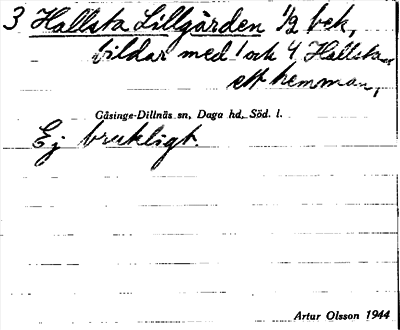 3 Hallsta Lillgården 1/2 bek,
bildar med 1 och 4 Hallsta
ett hemman,
Gåsinge-Dillnäs sn, Daga hd, Söd. l.
Ej brukligt.
Artur Olsson 1944